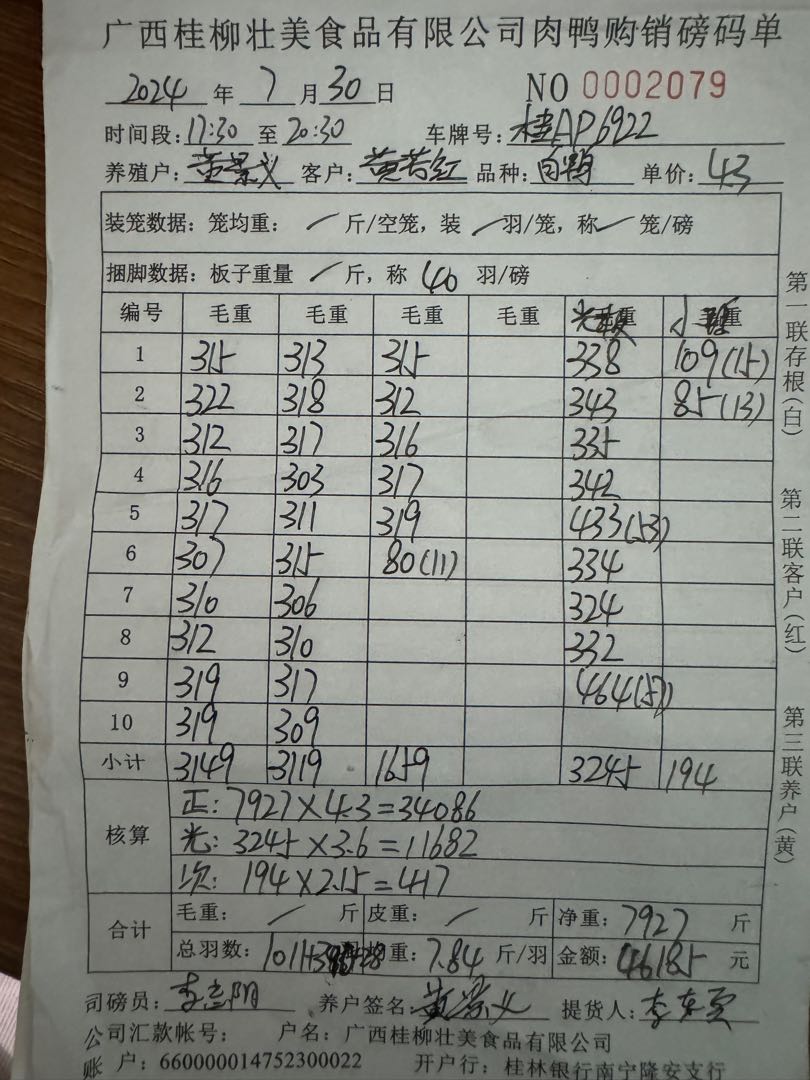 广西桂柳壮美食品有限公司肉鸭购销磅码单
2024 年 7 月 30 日 NO 0002079
时间段: 17:30 至 20:30 车牌号: 桂AP6922
养殖户: 黄景义 客户: 黄若红 品种: 白鸭 单价: 4.3
装笼数据: 笼均重: / 斤/空笼, 装 / 羽/笼, 称 / 笼/磅
捆脚数据: 板子重量 / 斤, 称 40 羽/磅
编号 毛重 毛重 毛重 毛重 光 重 小 重
1 315 313 315 338 109(15)
2 322 318 312 343 85(13)
3 312 317 316 335
4 316 303 317 342
5 317 311 319 433(53)
6 307 315 80(11) 334
7 310 306 324
8 312 310 332
9 319 317 464(57)
10 319 309
小计 3149 3119 1659 3245 194
核算
正: 7927×4.3=34086
光: 3245×3.6=11682
次: 194×2.15=417
合计
毛重: / 斤 皮重: / 斤 净重: 7927 斤
总羽数: 1011+ +28 均重: 7.84 斤/羽 金额: 46185 元
司磅员: 李 阴 养户签名 黄景义 提货人: 李
公司汇款帐号: 户名: 广西桂柳壮美食品有限公司
账 户: 660000014752300022 开户行: 桂林银行南宁隆安支行
第一联存根(白)
第二联客户(红)
第三联养户(黄)